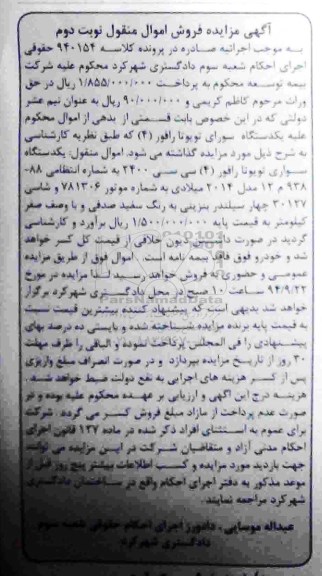 آگهی مزایده فروش اموال منقول نوبت دوم
به موجب اجرائیه صادره در پرونده کلاسه ۹۴۰۱۵۴ حقوقی
اجرای احکام شعبه سوم دادگستری شهرکرد محکوم علیه شرکت
بیمه توسعه محکوم به پرداخت ۱/۸۵۵/۰۰۰/۰۰۰ ریال در حق
وراث مرحوم کاظم کریمی و ۹۰/۰۰۰/۰۰۰ ریال به عنوان نیم عشر
دولتی که در این خصوص بابت قسمتی از بدهی از اموال محکوم
علیه یکدستگاه سواری تویوتا رافور (۴) که طبق نظریه کارشناسی
به شرح ذیل مورد مزایده گذاشته می شود. اموال منقول: یکدستگاه
سواری تویوتا رافور (۴) سی سی ۲۴۰۰ به شماره انتظامی ۸۸-
۹۳۸ م ۱۲ مدل ۲۰۱۴ میلادی به شماره موتور ۷۸۱۳۰۶ و شاسی
۳۰۱۲۷ چهار سیلندر بنزینی به رنگ سفید صدفی و با وصف صفر
کیلومتر به قیمت پایه ۱/۵۰۰/۰۰۰/۰۰۰ ریال برآورد و کارشناسی
گردید در صورت داشتن دیون خلافی از قیمت کل کسر خواهد
شد و خودرو فوق فاقد بیمه نامه است. اموال فوق از طریق مزایده
عمومی و حضوری به فروش خواهد رسید لذا مزایده در مورخ
۹۴/۹/۲۲ ساعت ۱۰ صبح در محل دادگستری شهرکرد برگزار
خواهد شد بدیهی است که پیشنهاد کننده بیشترین قیمت نسبت
به قیمت پایه برنده مزایده شناخته شده و بایستی ده درصد بهای
پیشنهادی را فی المجلس پرداخت نموده و الباقی را ظرف مهلت
۳۰ روز از تاریخ مزایده بپردازد و در صورت انصراف مبلغ واریزی
پس از کسر هزینه های اجرایی به نفع دولت ضبط خواهد شد.
هزینه درج این آگهی و ارزیابی بر عهده محکوم علیه بوده و در
صورت عدم پرداخت از مازاد مبلغ فروش کسر می گردد. شرکت
برای عموم به استثنای افراد ذکر شده در ماده ۱۲۷ قانون اجرای
احکام مدنی آزاد و متقاضیان شرکت در این مزایده می توانند
جهت بازدید مورد مزایده و کسب اطلاعات بیشتر پنج روز قبل از
موعد مذکور به دفتر اجرای احکام واقع در ساختمان دادگستری
شهرکرد مراجعه نمایند.
عبداله موسایی - دادورز اجرای احکام حقوقی شعبه سوم
دادگستری شهرکرد